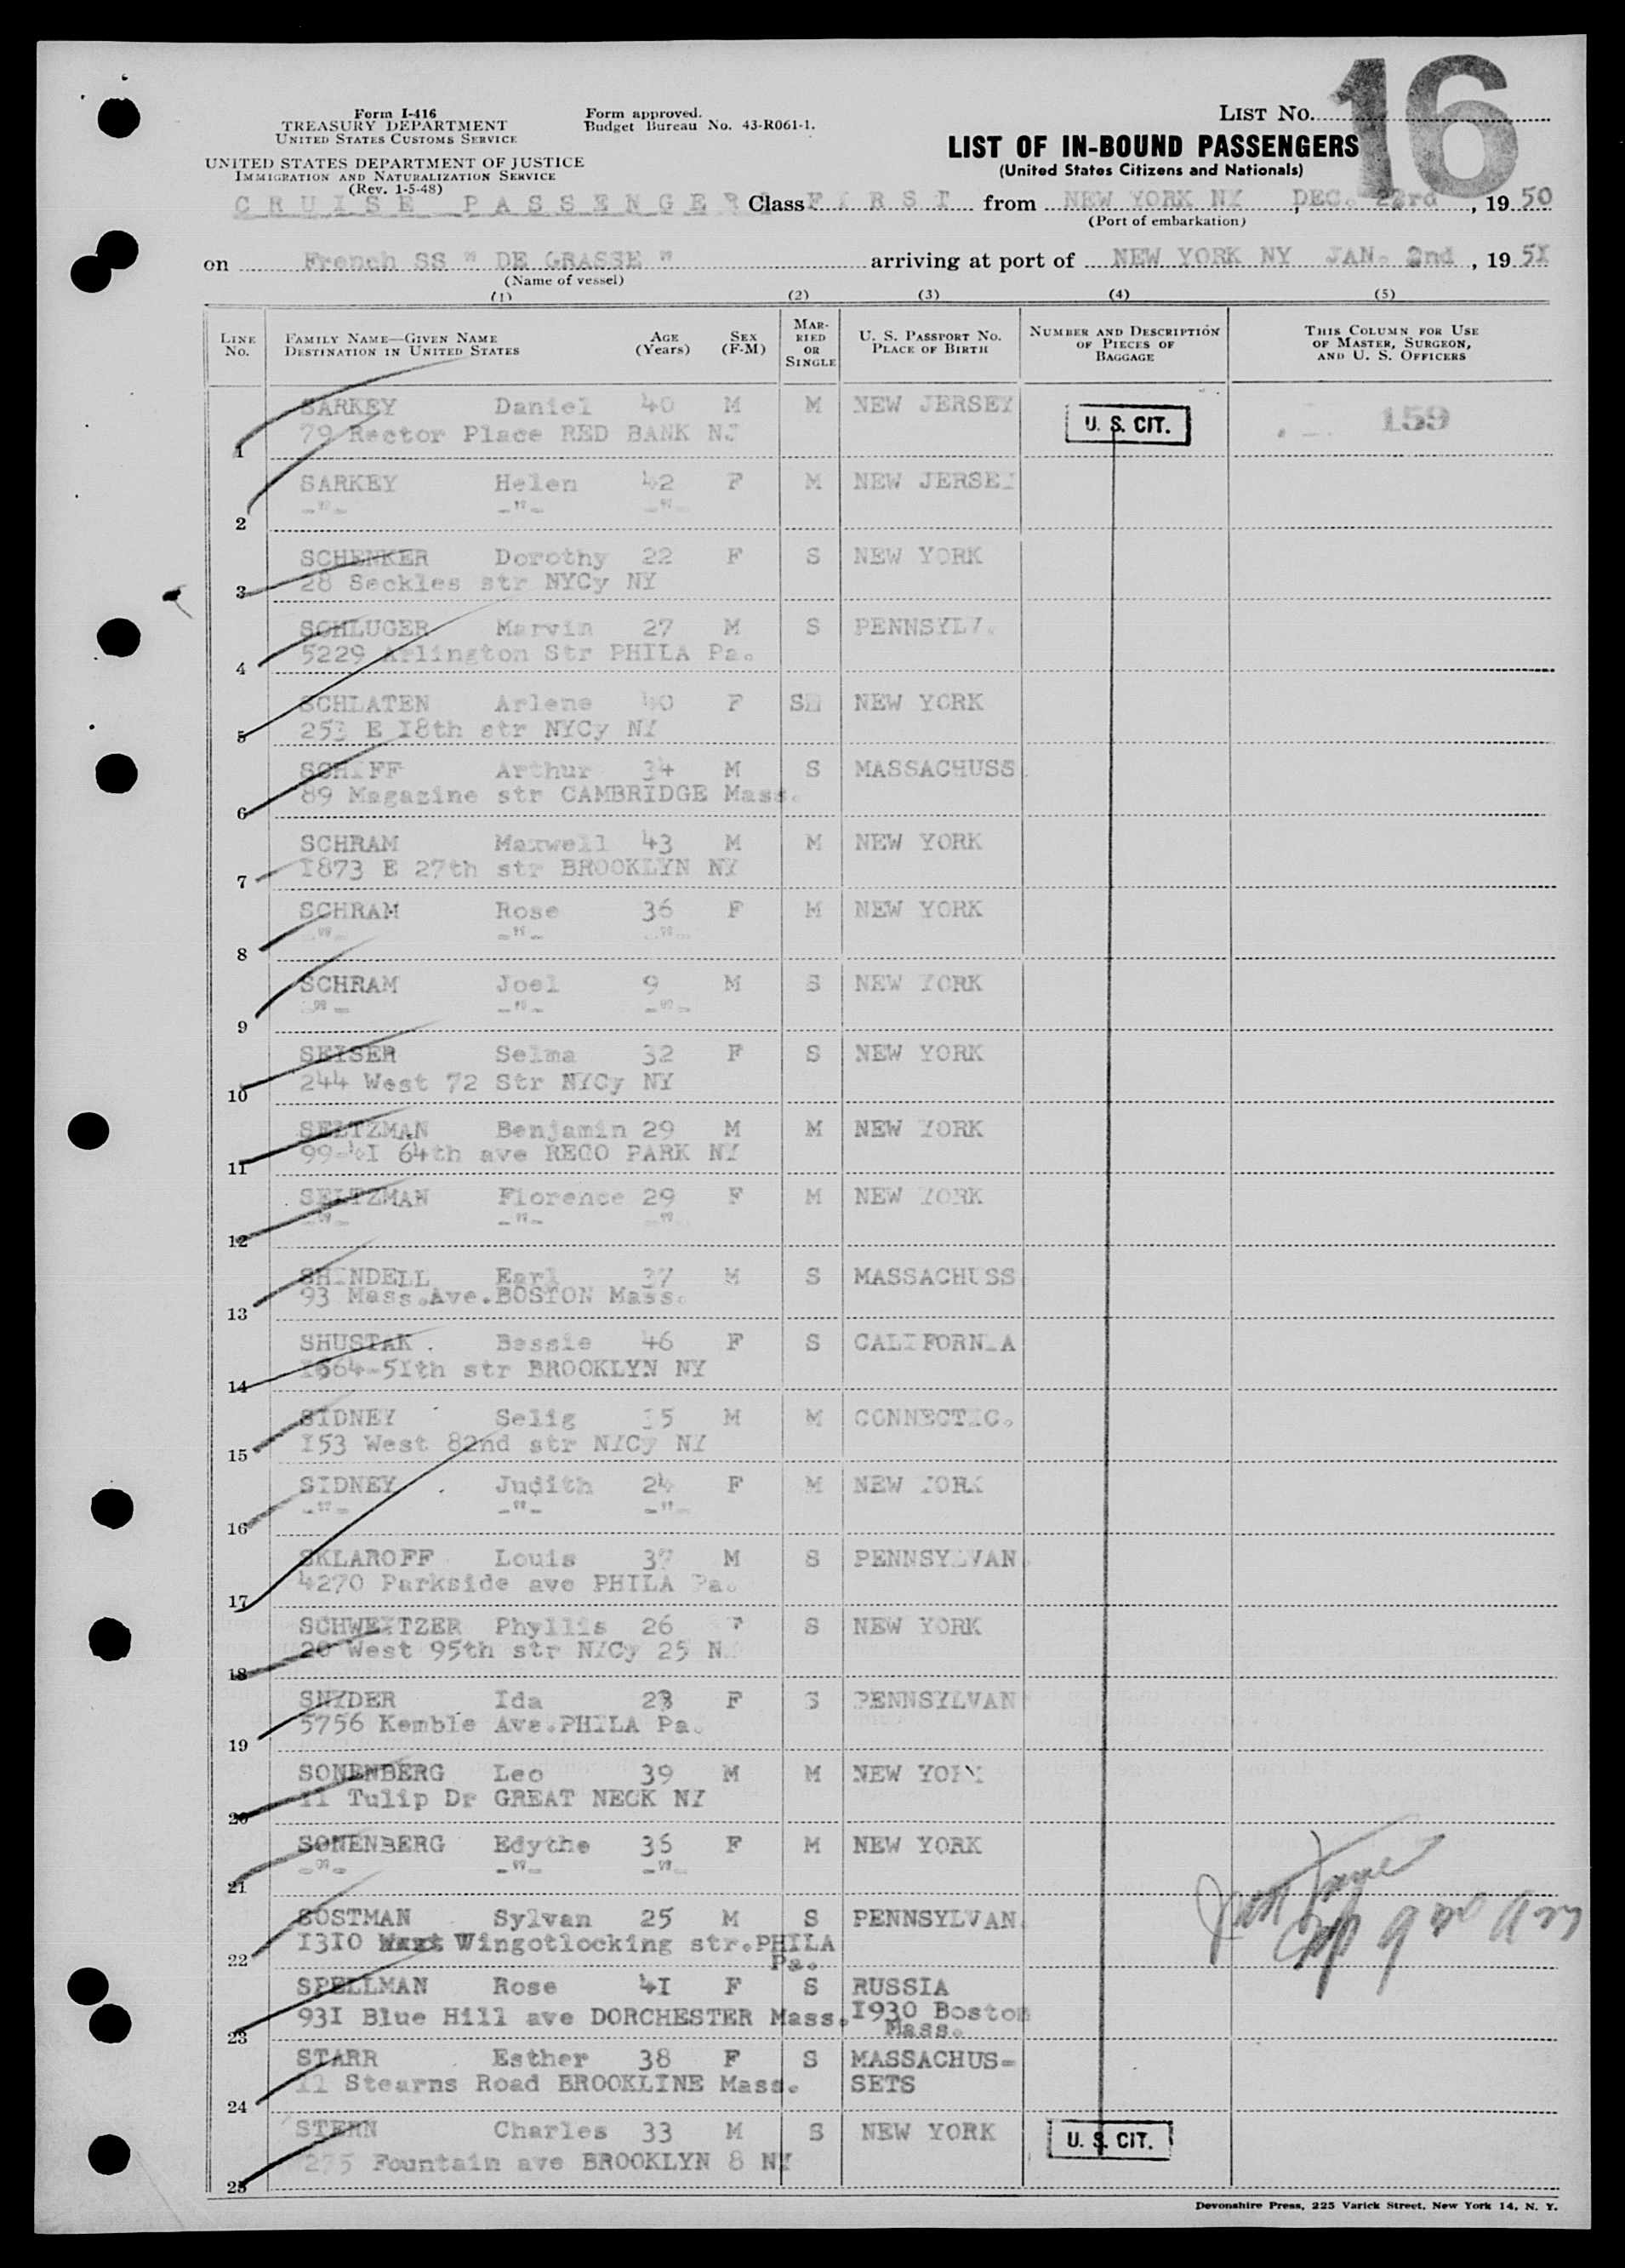 16
Form I-416
TREASURY DEPARTMENT
UNITED STATES CUSTOMS SERVICE
UNITED STATES DEPARTMENT OF JUSTICE
IMMIGRATION AND NATURALIZATION SERVICE
(Rev. 1-5-48)
Form approved.
Budget Bureau No. 43-R061-1.
LIST NO.
LIST OF IN-BOUND PASSENGERS
(United States Citizens and Nationals)
CRUISE PASSENGER Class FIRST from NEW YORK NY, DEC. 22rd, 1950
(Port of embarkation)
on French SS " DE GRASSE " arriving at port of NEW YORK NY JAN. 2nd, 195I
(Name of vessel)
(1) (2) (3) (4) (5)
LINE No. FAMILY NAME—GIVEN NAME DESTINATION IN UNITED STATES AGE (Years) SEX (F-M) MARRIED OR SINGLE U. S. PASSPORT NO. PLACE OF BIRTH NUMBER AND DESCRIPTION OF PIECES OF BAGGAGE THIS COLUMN FOR USE OF MASTER, SURGEON, AND U. S. OFFICERS
SARKEY Daniel 40 M M NEW JERSEY U. S. CIT. 159
1 79 Rector Place RED BANK NJ
SARKEY Helen 42 F M NEW JERSEY
2 -"- -"- -"-
SCHENKER Dorothy 22 F S NEW YORK
3 28 Seckles str NYCy NY
SCHLUGER Marvin 27 M S PENNSYLV.
4 5229 Arlington Str PHILA Pa.
SCHLATEN Arlene 40 F S NEW YORK
5 253 E I8th str NYCy NY
SCHIFF Arthur 34 M S MASSACHUSS
6 89 Magazine str CAMBRIDGE Mass.
SCHRAM Maxwell 43 M M NEW YORK
7 I873 E 27th str BROOKLYN NY
SCHRAM Rose 36 F M NEW YORK
8 -"- -"- -"-
SCHRAM Joel 9 M S NEW YORK
9 -"- -"- -"-
SEISER Selma 32 F S NEW YORK
10 244 West 72 Str NYCy NY
SELTZMAN Benjamin 29 M M NEW YORK
11 99-4I 64th ave REGO PARK NY
SELTZMAN Florence 29 F M NEW YORK
12 -"- -"- -"
SHINDELL Earl 37 M S MASSACHUSS
13 93 Mass.Ave.BOSTON Mass.
SHUSTAK Bessie 46 F S CALIFORNIA
14 I664-5Ith str BROOKLYN NY
SIDNEY Selig 35 M M CONNECTIC.
15 I53 West 82nd str NYCy NY
SIDNEY Judith 24 F M NEW YORK
16 -"- -"- -"-
SKLAROFF Louis 37 M S PENNSYLVAN
17 4270 Parkside ave PHILA Pa.
SCHWEITZER Phyllis 26 F S NEW YORK
18 20 West 95th str NYCy 25 N
SNYDER Ida 23 F S PENNSYLVAN
19 5756 Kemble Ave.PHILA Pa.
SONENBERG Leo 39 M M NEW YORK
20 II Tulip Dr GREAT NECK NY
SONENBERG Edythe 36 F M NEW YORK
21 -"- -"- -"-
SOSTMAN Sylvan 25 M S PENNSYLVAN
22 I3I0 Wingotlocking str.PHILA
Pa.
SPELLMAN Rose 4I F S RUSSIA
23 93I Blue Hill ave DORCHESTER Mass. I930 Boston
Mass.
STARR Esther 38 F S MASSACHUS=
24 11 Stearns Road BROOKLINE Mass. SETS
STERN Charles 33 M S NEW YORK U. S. CIT.
25 275 Fountain ave BROOKLYN 8 NY
Devonshire Press, 225 Varick Street, New York 14, N. Y.